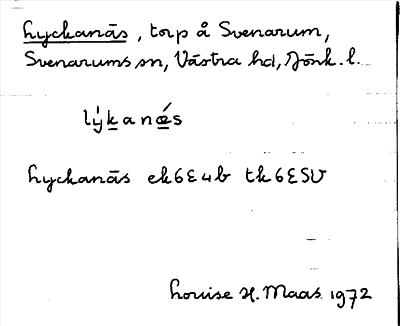 Lyckanäs, torp å Svenarum,
Svenarums sn, Västra hd, Jönk. l.
lýkanǽs
Lyckanäs ek 6E4b tk 6ESV
Louise H. Maas 1972